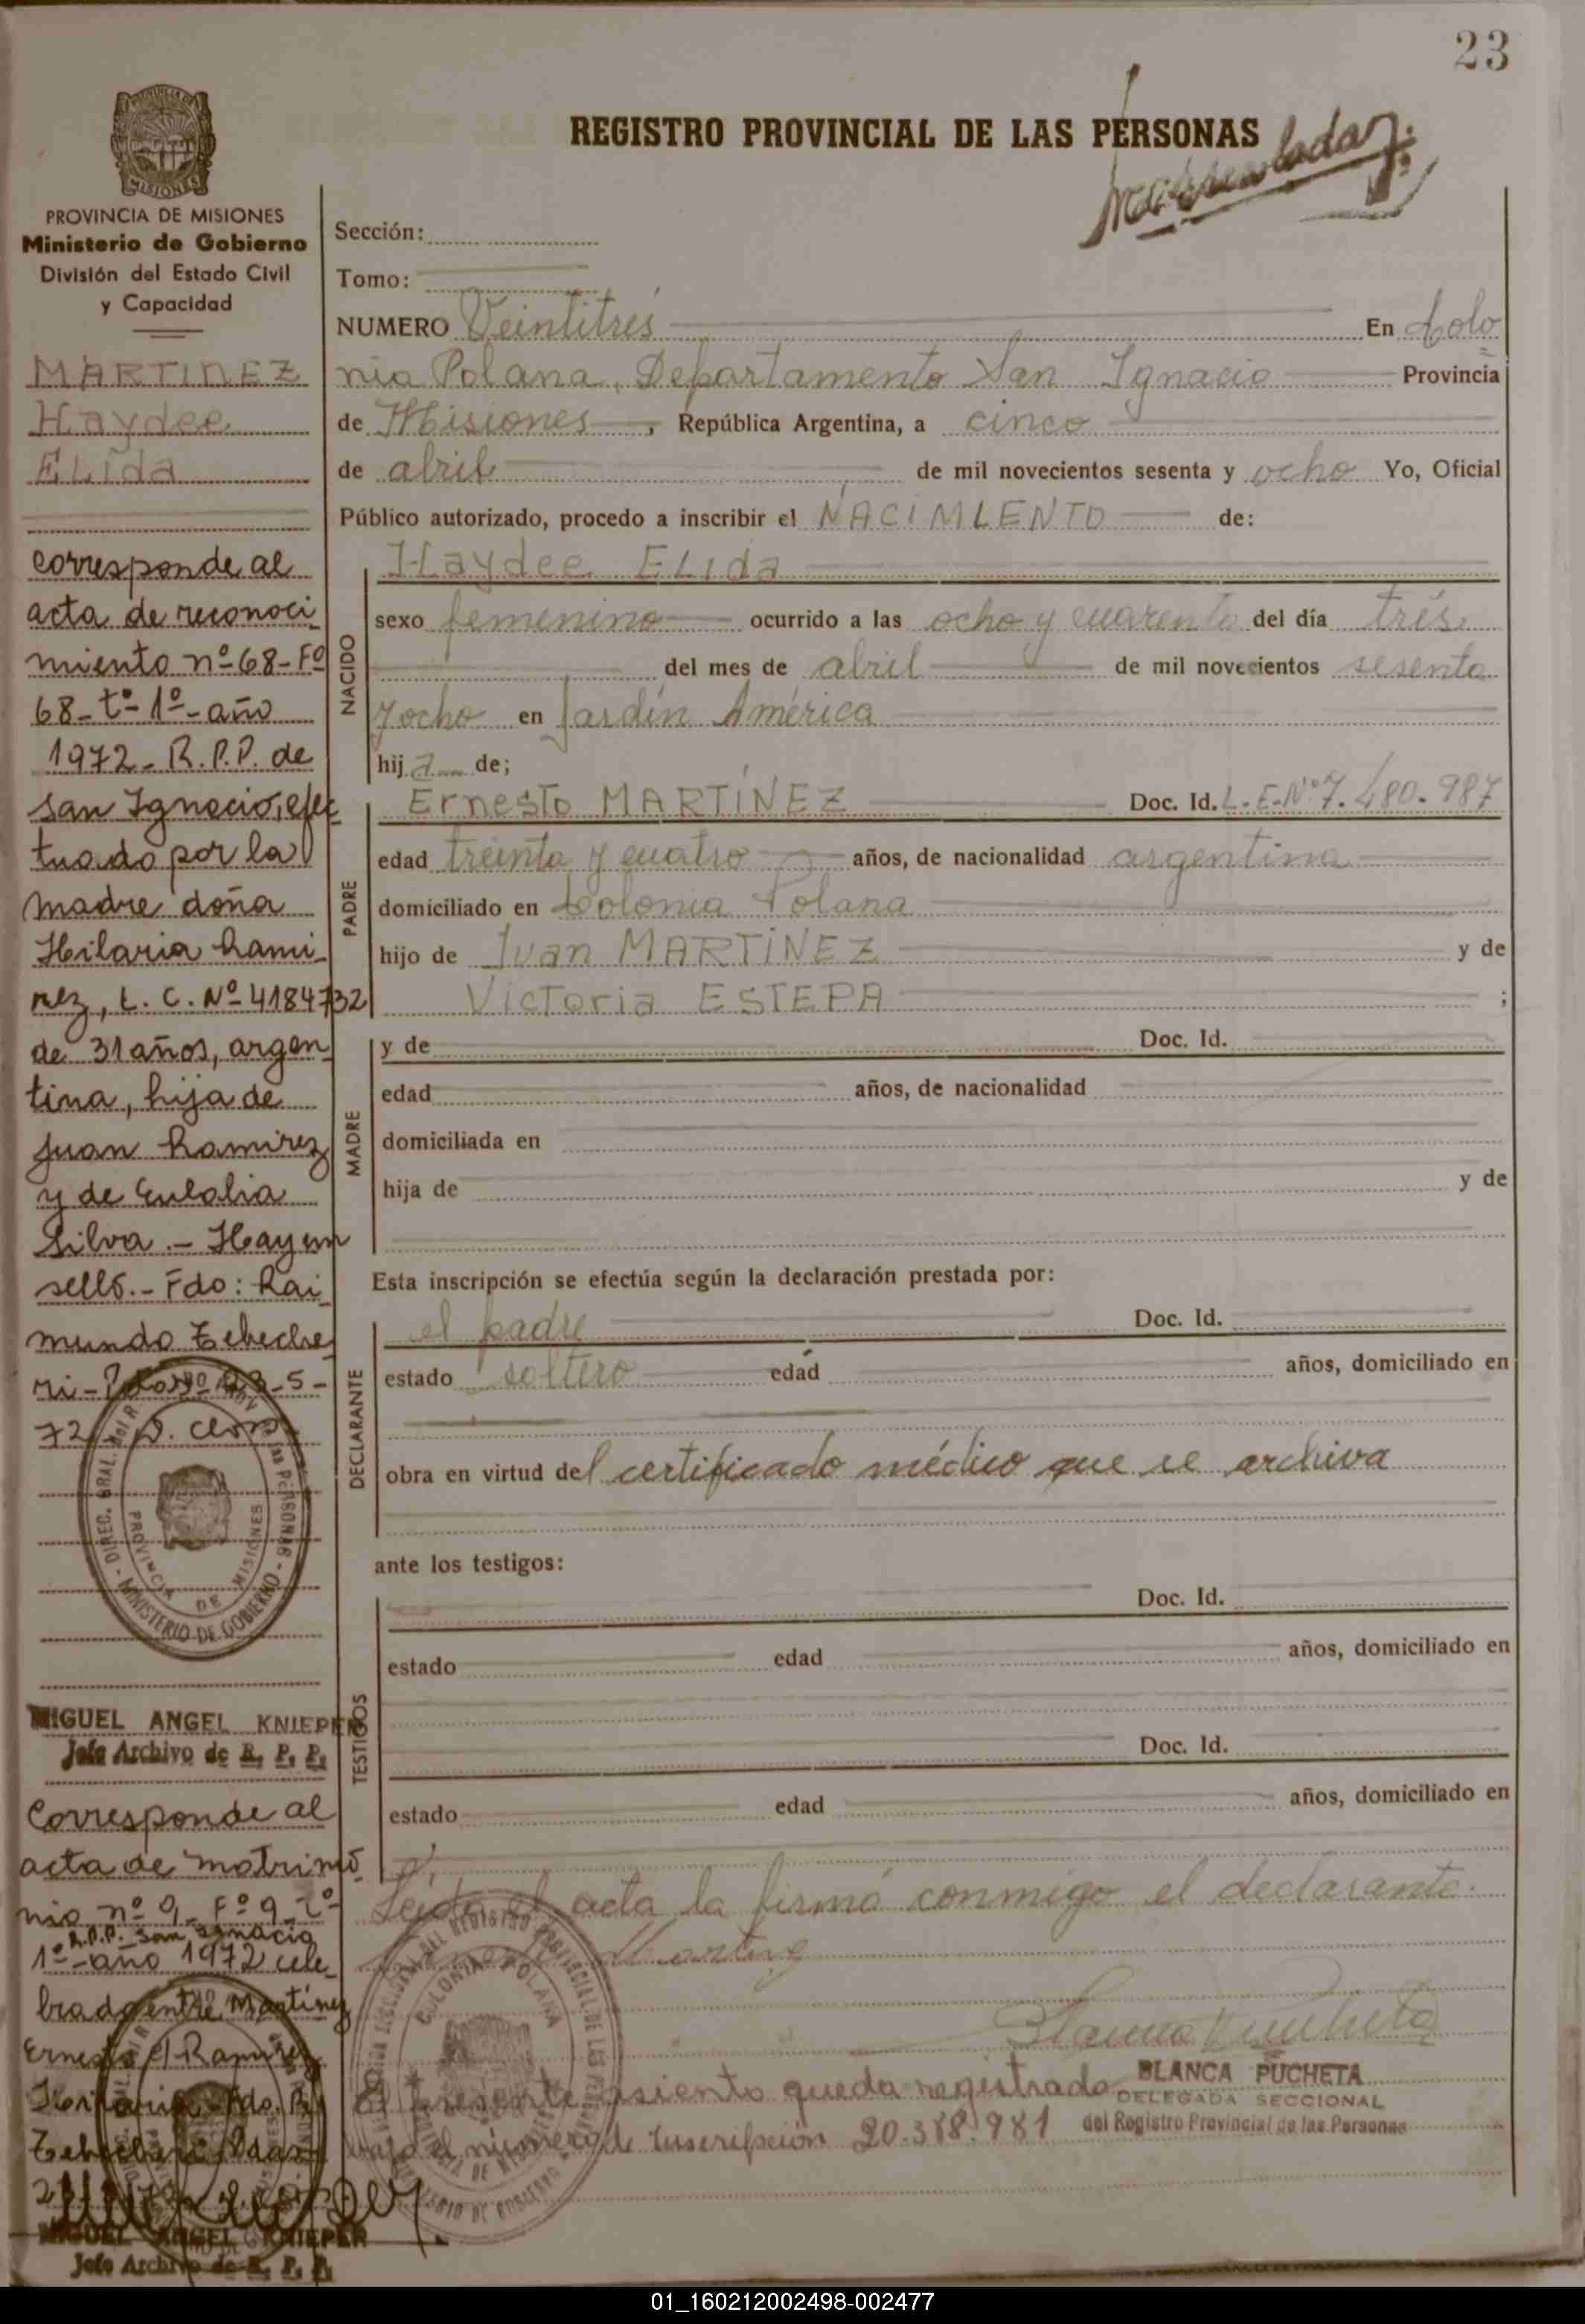 23
REGISTRO PROVINCIAL DE LAS PERSONAS
PROVINCIA DE MISIONES
Ministerio de Gobierno
División del Estado Civil
y Capacidad
MARTINEZ
Haydee
ELida
corresponde al
acta de reconoci
miento nº 68-Fº
68-tº 1º-año
1972-R.P.P. de
San Ignacio, efec
tuado por la
madre doña
Hilaria Rami-
rez, L. C. Nº 4184732
de 31 años, argen-
tina, hija de
Juan Ramirez
y de Eulalia
Silva.- Hay un
sello.- Fdo: Rai
mundo
72
DIREC. GRAL. del R
MINISTERIO DE GOBIERNO
PROVINCIA DE MISIONES
MIGUEL ANGEL KNIEPER
Jefe Archivo de R. P. P.
Corresponde al
acta de matrimo
nio nº 9 Fº 9 tº
R.P.P. San Ignacio
1º-año 1972 cele-
brado entre Martínez
Ernesto y Ramirez
Hilaria Fdo. R.
MIGUEL ANGEL KNIEPER
Jefe Archivo de R. P. P.
Sección:
Tomo:
NUMERO Veintitrés En Colo
nia Polana, Departamento San Ignacio Provincia
de Misiones, República Argentina, a cinco
de abril de mil novecientos sesenta y ocho Yo, Oficial
Público autorizado, procedo a inscribir el NACIMIENTO de:
NACIDO
Haydee ELida
sexo femenino ocurrido a las ocho y cuarenta del día trés
del mes de abril de mil novecientos sesenta
y ocho en Jardín América
hija de;
PADRE
Ernesto MARTÍNEZ Doc. Id. L.E.Nº 7.480.987
edad treinta y cuatro años, de nacionalidad argentina
domiciliado en Colonia Polana
hijo de Juan MARTÍNEZ y de
Victoria ESTEPA ;
MADRE
y de Doc. Id.
edad años, de nacionalidad
domiciliada en
hija de y de
Esta inscripción se efectúa según la declaración prestada por:
DECLARANTE
el padre Doc. Id.
estado soltero edad años, domiciliado en
obra en virtud del certificado médico que se archiva
ante los testigos:
TESTIGOS
Doc. Id.
estado edad años, domiciliado en
Doc. Id.
estado edad años, domiciliado en
Leída el acta la firmó conmigo el declarante.
Martinez
COLONIA POLANA
Blanca Pucheta
BLANCA PUCHETA
DELEGADA SECCIONAL
del Registro Provincial de las Personas
El presente asiento queda registrado
bajo el número de Inscripción 20.388.981
01_160212002498-002477